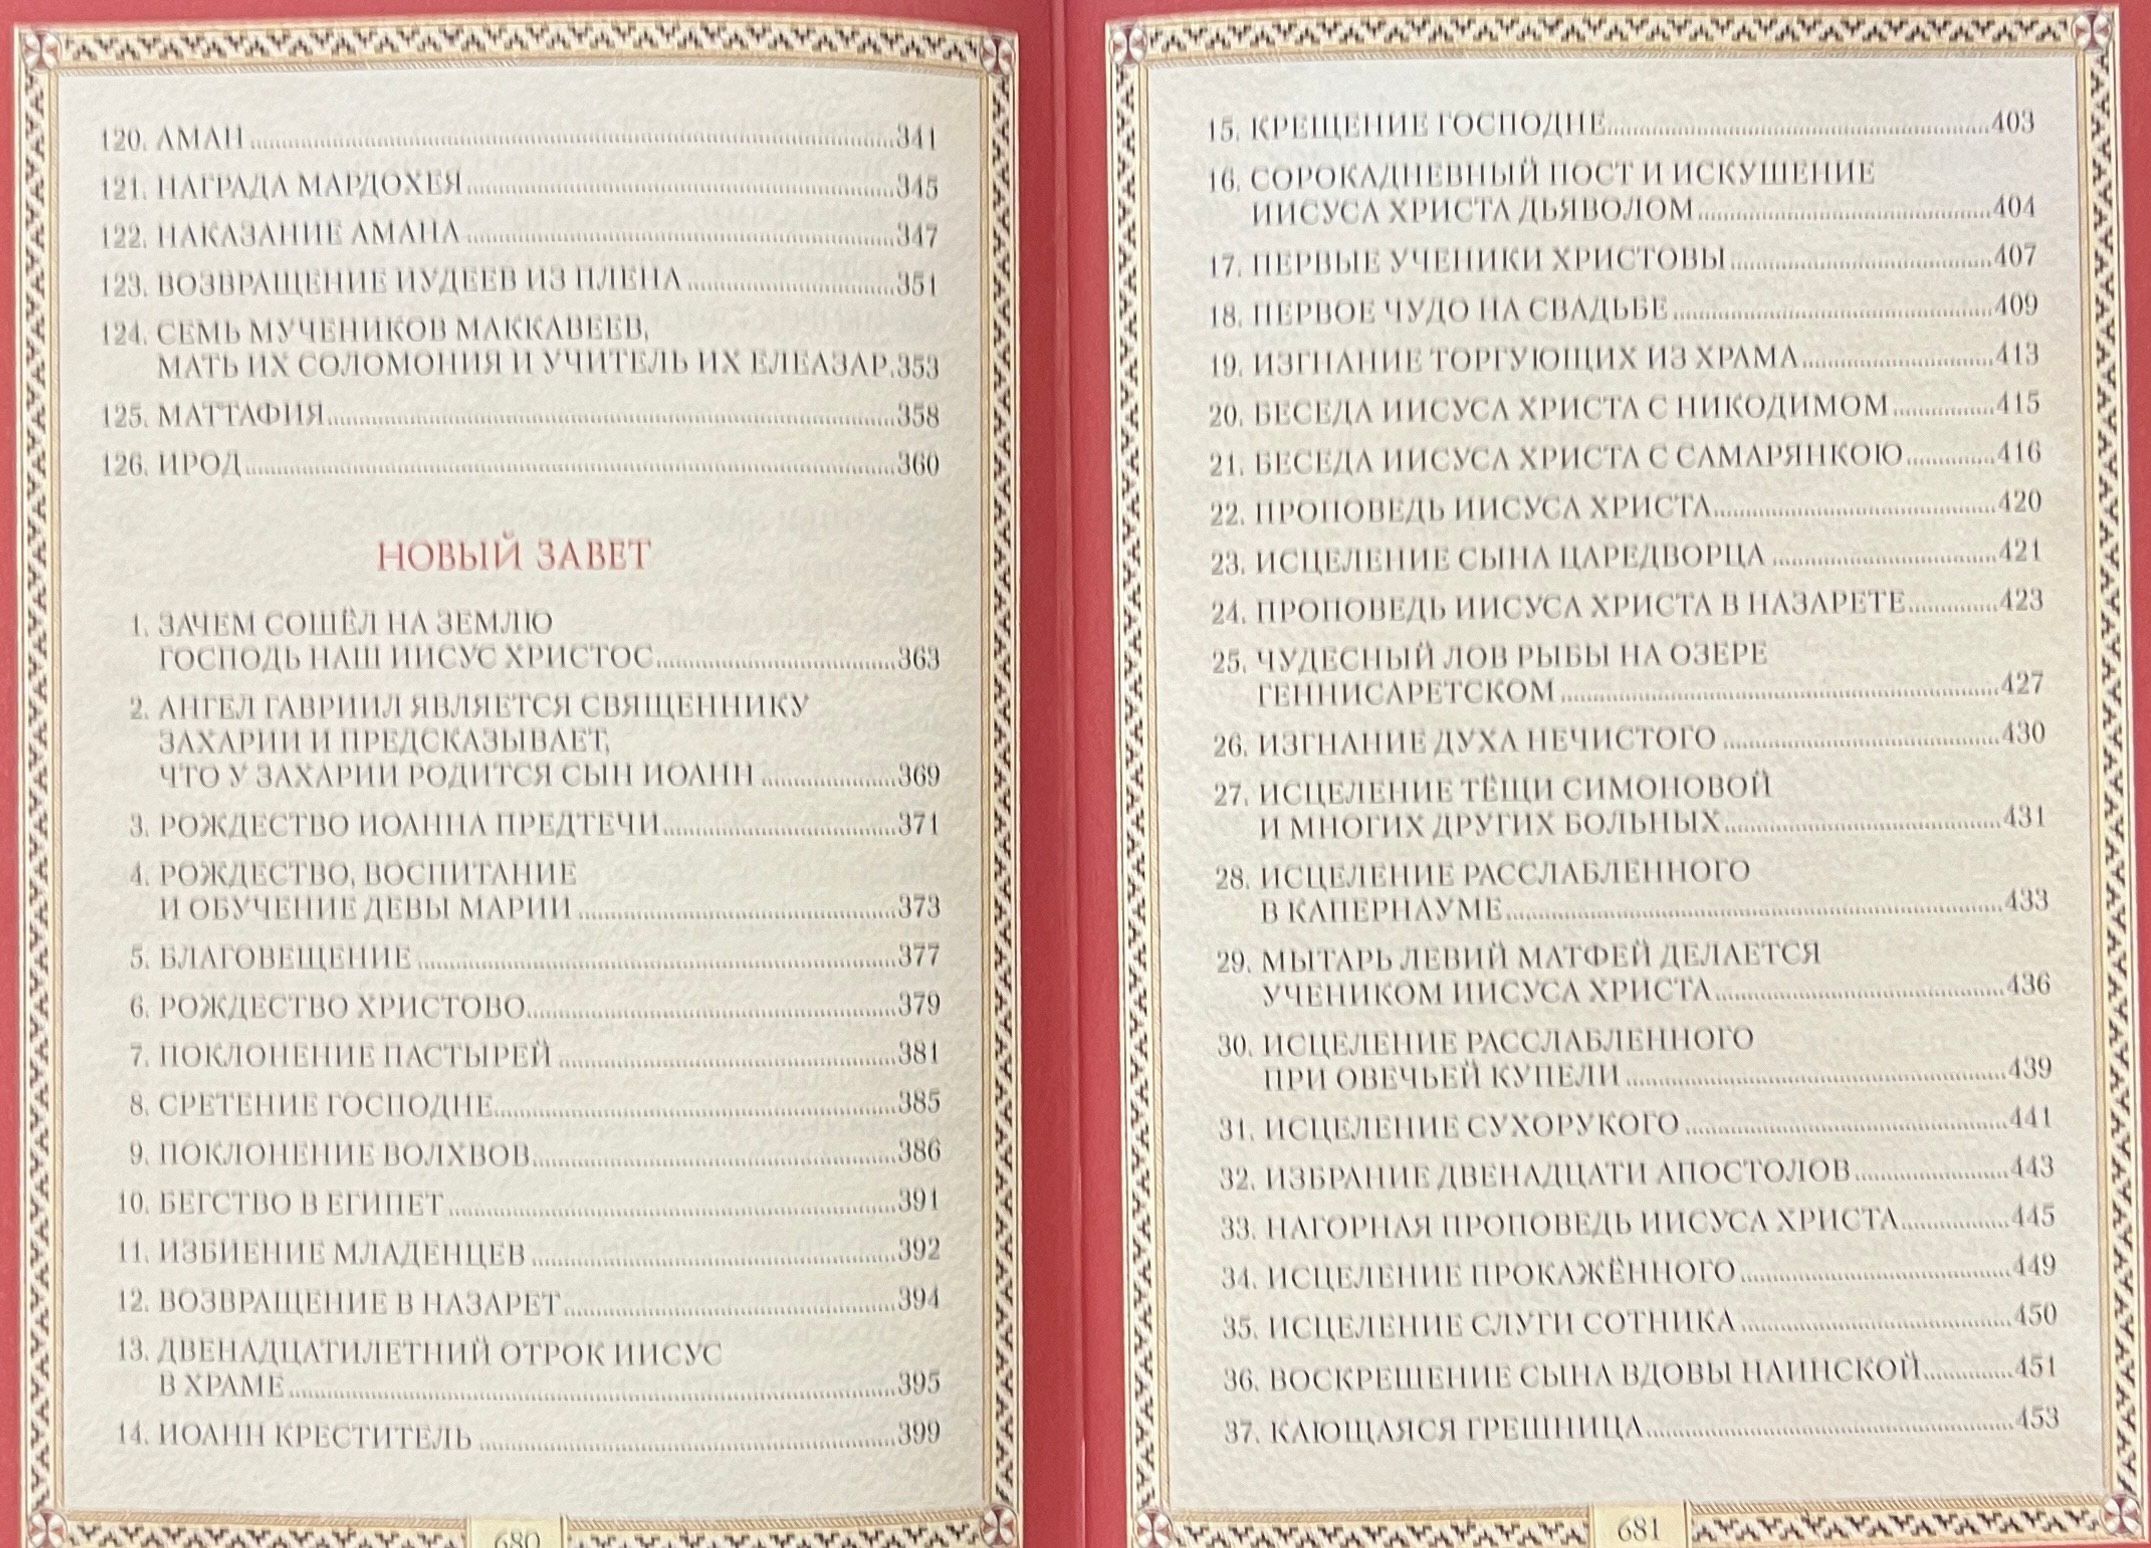 120. АМАН ... 341
121. НАГРАДА МАРДОХЕЯ ... 345
122. НАКАЗАНИЕ АМАНА ... 347
123. ВОЗВРАЩЕНИЕ ИУДЕЕВ ИЗ ПЛЕНА ... 351
124. СЕМЬ МУЧЕНИКОВ МАККАВЕЕВ,
МАТЬ ИХ СОЛОМОНИЯ И УЧИТЕЛЬ ИХ ЕЛЕАЗАР. 353
125. МАТТАФИЯ ... 358
126. ИРОД ... 360
НОВЫЙ ЗАВЕТ
1. ЗАЧЕМ СОШЁЛ НА ЗЕМЛЮ
ГОСПОДЬ НАШ ИИСУС ХРИСТОС ... 363
2. АНГЕЛ ГАВРИИЛ ЯВЛЯЕТСЯ СВЯЩЕННИКУ
ЗАХАРИИ И ПРЕДСКАЗЫВАЕТ,
ЧТО У ЗАХАРИИ РОДИТСЯ СЫН ИОАНН ... 369
3. РОЖДЕСТВО ИОАННА ПРЕДТЕЧИ ... 371
4. РОЖДЕСТВО, ВОСПИТАНИЕ
И ОБУЧЕНИЕ ДЕВЫ МАРИИ ... 373
5. БЛАГОВЕЩЕНИЕ ... 377
6. РОЖДЕСТВО ХРИСТОВО ... 379
7. ПОКЛОНЕНИЕ ПАСТЫРЕЙ ... 381
8. СРЕТЕНИЕ ГОСПОДНЕ ... 385
9. ПОКЛОНЕНИЕ ВОЛХВОВ ... 386
10. БЕГСТВО В ЕГИПЕТ ... 391
11. ИЗБИЕНИЕ МЛАДЕНЦЕВ ... 392
12. ВОЗВРАЩЕНИЕ В НАЗАРЕТ ... 394
13. ДВЕНАДЦАТИЛЕТНИЙ ОТРОК ИИСУС
В ХРАМЕ ... 395
14. ИОАНН КРЕСТИТЕЛЬ ... 399
680
15. КРЕЩЕНИЕ ГОСПОДНЕ ... 403
16. СОРОКАДНЕВНЫЙ ПОСТ И ИСКУШЕНИЕ
ИИСУСА ХРИСТА ДЬЯВОЛОМ ... 404
17. ПЕРВЫЕ УЧЕНИКИ ХРИСТОВЫ ... 407
18. ПЕРВОЕ ЧУДО НА СВАДЬБЕ ... 409
19. ИЗГНАНИЕ ТОРГУЮЩИХ ИЗ ХРАМА ... 413
20. БЕСЕДА ИИСУСА ХРИСТА С НИКОДИМОМ ... 415
21. БЕСЕДА ИИСУСА ХРИСТА С САМАРЯНКОЮ ... 416
22. ПРОПОВЕДЬ ИИСУСА ХРИСТА ... 420
23. ИСЦЕЛЕНИЕ СЫНА ЦАРЕДВОРЦА ... 421
24. ПРОПОВЕДЬ ИИСУСА ХРИСТА В НАЗАРЕТЕ ... 423
25. ЧУДЕСНЫЙ ЛОВ РЫБЫ НА ОЗЕРЕ
ГЕННИСАРЕТСКОМ ... 427
26. ИЗГНАНИЕ ДУХА НЕЧИСТОГО ... 430
27. ИСЦЕЛЕНИЕ ТЁЩИ СИМОНОВОЙ
И МНОГИХ ДРУГИХ БОЛЬНЫХ ... 431
28. ИСЦЕЛЕНИЕ РАССЛАБЛЕННОГО
В КАПЕРНАУМЕ ... 433
29. МЫТАРЬ ЛЕВИЙ МАТФЕЙ ДЕЛАЕТСЯ
УЧЕНИКОМ ИИСУСА ХРИСТА ... 436
30. ИСЦЕЛЕНИЕ РАССЛАБЛЕННОГО
ПРИ ОВЕЧЬЕЙ КУПЕЛИ ... 439
31. ИСЦЕЛЕНИЕ СУХОРУКОГО ... 441
32. ИЗБРАНИЕ ДВЕНАДЦАТИ АПОСТОЛОВ ... 443
33. НАГОРНАЯ ПРОПОВЕДЬ ИИСУСА ХРИСТА ... 445
34. ИСЦЕЛЕНИЕ ПРОКАЖЁННОГО ... 449
35. ИСЦЕЛЕНИЕ СЛУГИ СОТНИКА ... 450
36. ВОСКРЕШЕНИЕ СЫНА ВДОВЫ НАИНСКОЙ ... 451
37. КАЮЩАЯСЯ ГРЕШНИЦА ... 453
681